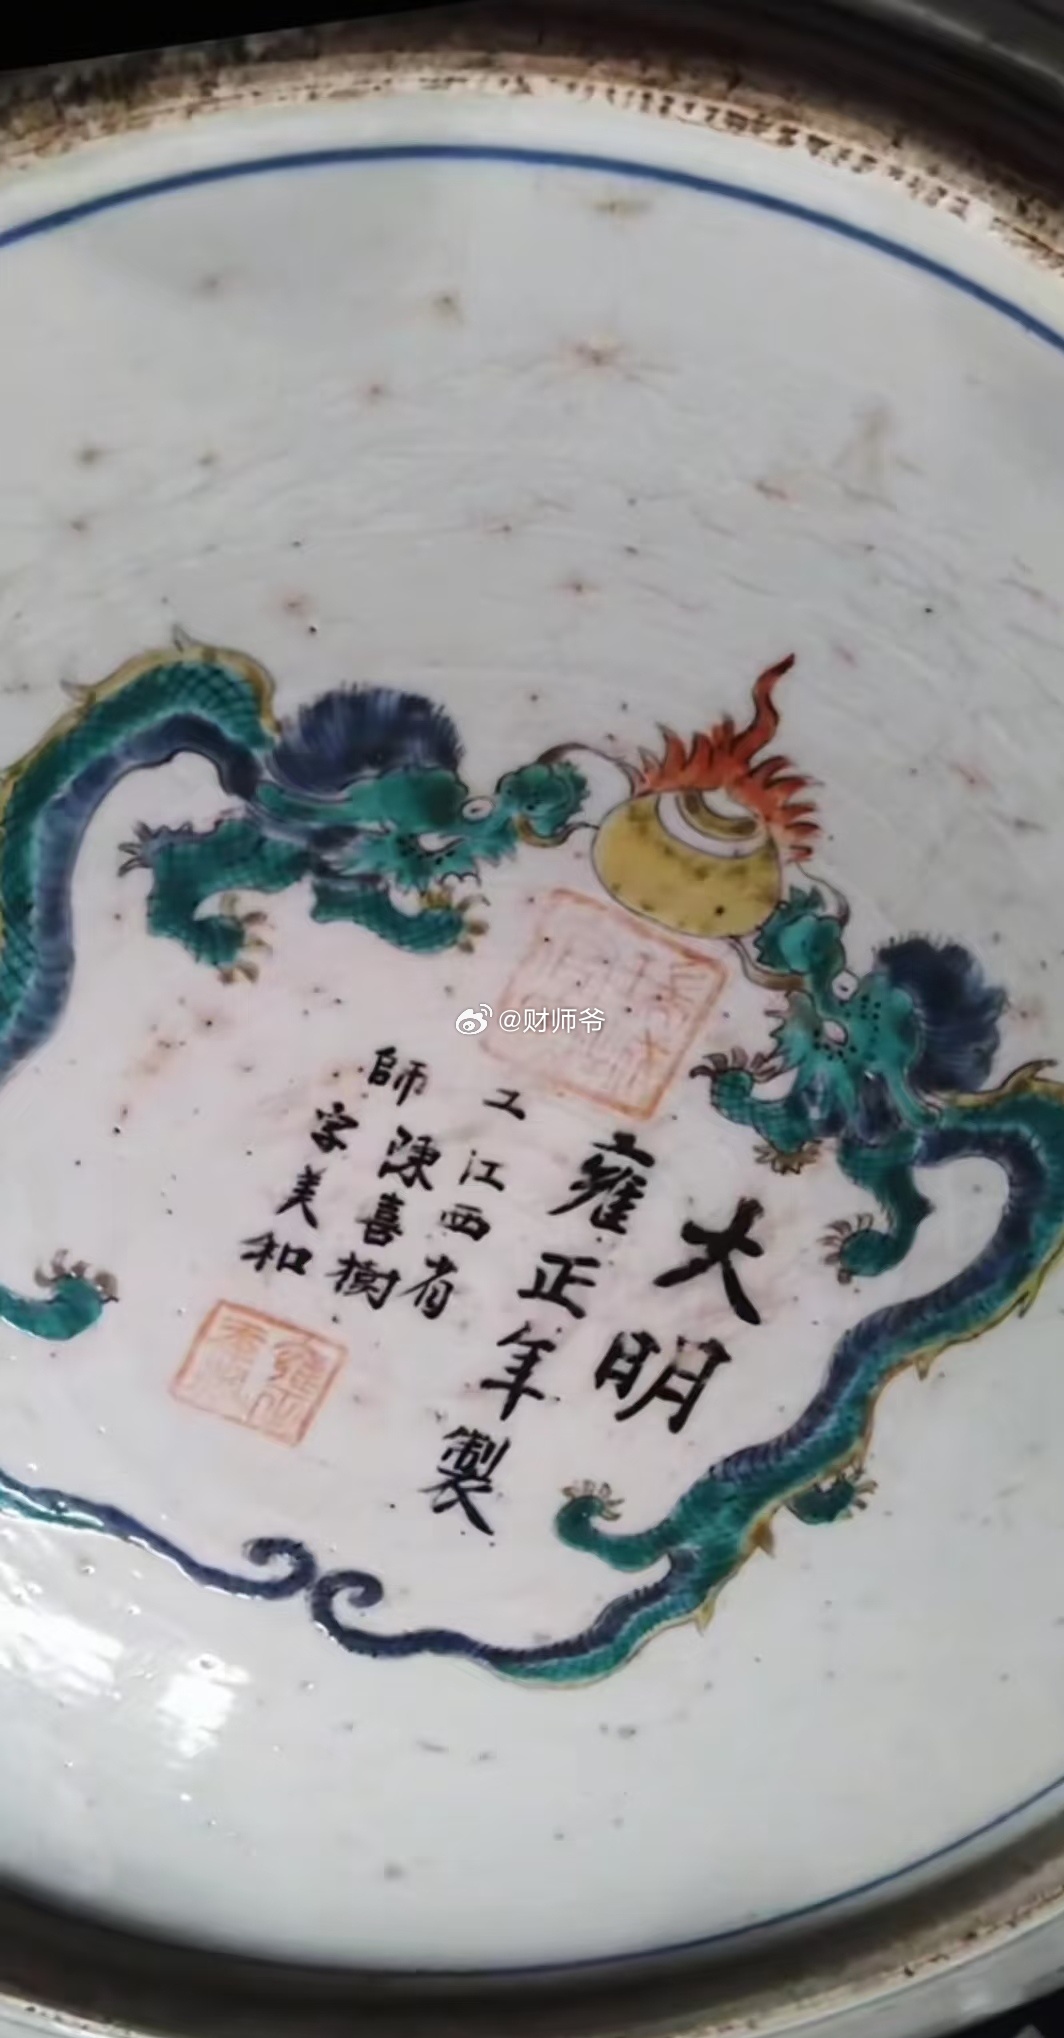 大明
雍正年製
工江西省
師陳喜樹
字美和
雍正
@财师爷